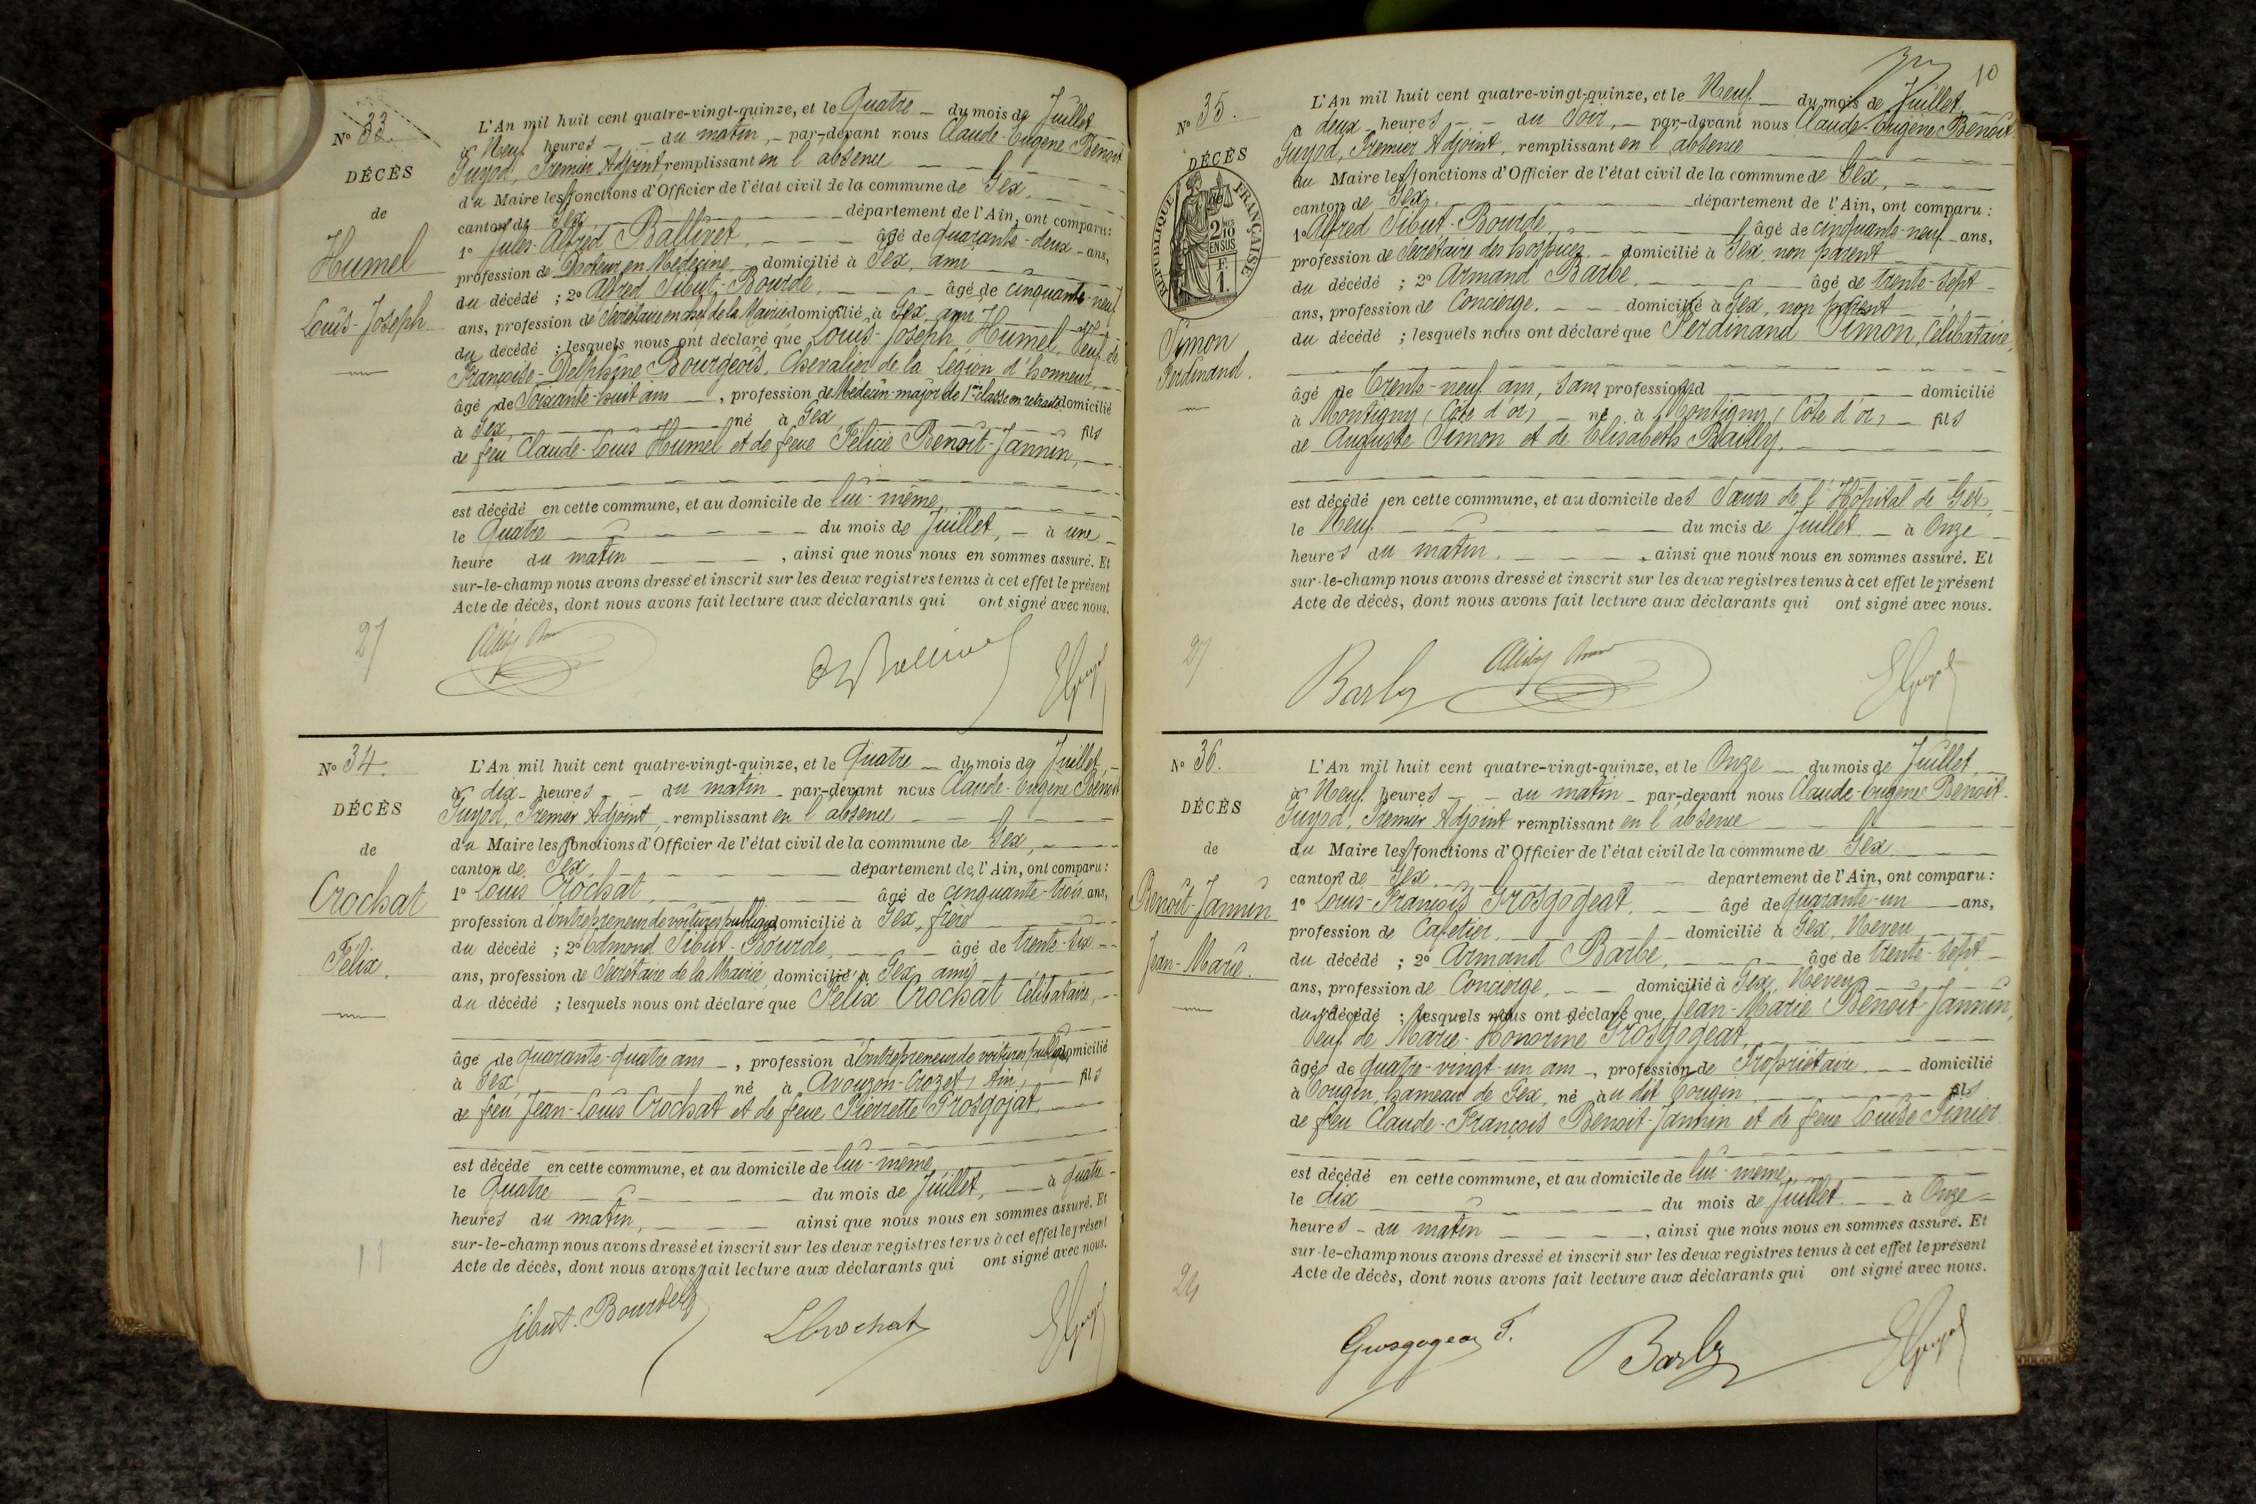 N° 33.
DÉCÈS
de
Humel
Louis-Joseph
L'An mil huit cent quatre-vingt-quinze, et le Quatre du mois de Juillet
à Neuf heures du matin, par-devant nous Claude-Eugène Benoit
Guyod, Premier Adjoint remplissant en l'absence
du Maire les fonctions d'Officier de l'état civil de la commune de Gex,
canton de Gex, département de l'Ain, ont comparu:
1° Jules-Alfred Ballivet, âgé de quarante-deux ans,
profession de Docteur en Médecine domicilié à Gex, ami
du décédé ; 2° Alfred Sibut-Bourde, âgé de cinquante-neuf
ans, profession de Secrétaire en chef de la Mairie domicilié à Gex, ami
du décédé ; lesquels nous ont déclaré que Louis-Joseph Humel, Veuf de
Françoise-Delphine Bourgeois, Chevalier de la Légion d'honneur,
âgé de Soixante-huit ans, profession de Médecin-major de 1ère classe en retraite domicilié
à Gex, né à Gex, fils
de feu Claude-Louis Humel et de feue Félicie Benoit-Jannin,
est décédé en cette commune, et au domicile de lui-même
le Quatre du mois de Juillet, à une
heure du matin, ainsi que nous nous en sommes assuré. Et
sur-le-champ nous avons dressé et inscrit sur les deux registres tenus à cet effet le présent
Acte de décès, dont nous avons fait lecture aux déclarants qui ont signé avec nous.
27
N° 34.
DÉCÈS
de
Crochat
Félix.
L'An mil huit cent quatre-vingt-quinze, et le Quatre du mois de Juillet,
à dix heures du matin par-devant nous Claude-Eugène Benoit
Guyod, Premier Adjoint, remplissant en l'absence
du Maire les fonctions d'Officier de l'état civil de la commune de Gex,
canton de Gex, département de l'Ain, ont comparu:
1° Louis Crochat, âgé de cinquante-trois ans,
profession d'Entrepreneur de voitures publiques domicilié à Gex, frère
du décédé ; 2° Edmond Sibut-Bourde, âgé de trente-six
ans, profession de Secrétaire de la Mairie, domicilié à Gex, amis
du décédé ; lesquels nous ont déclaré que Félix Crochat Célibataire,
âgé de quarante-quatre ans, profession d'Entrepreneur de voitures publiques domicilié
à Gex, né à Avouzon-Crozet, Ain, fils
de feu Jean-Louis Crochat et de feue Pierrette Grosgojat,
est décédé en cette commune, et au domicile de lui-même
le Quatre du mois de Juillet, à quatre
heures du matin, ainsi que nous nous en sommes assuré. Et
sur-le-champ nous avons dressé et inscrit sur les deux registres tenus à cet effet le présent
Acte de décès, dont nous avons fait lecture aux déclarants qui ont signé avec nous.
11
Sibut-Bourde LCrochat
10
N° 35.
DÉCÈS
RÉPUBLIQUE FRANÇAISE
2 MES
10
EN SUS
F.
1.
Simon
Ferdinand.
L'An mil huit cent quatre-vingt-quinze, et le Neuf du mois de Juillet,
à deux heures du Soir, par-devant nous Claude-Eugène Benoit
Guyod, Premier Adjoint, remplissant en l'absence
du Maire les fonctions d'Officier de l'état civil de la commune de Gex,
canton de Gex, département de l'Ain, ont comparu:
1° Alfred Sibut-Bourde, âgé de cinquante-neuf ans,
profession de Secrétaire des hospices domicilié à Gex, non parent
du décédé ; 2° Armand Barbe, âgé de trente-sept
ans, profession de Concierge, domicilié à Gex, non parent
du décédé ; lesquels nous ont déclaré que Ferdinand Simon, Célibataire,
âgé de Trente-neuf ans, sans profession domicilié
à Montigny, Côte d'or, né à Montigny, Côte d'or, fils
de Auguste Simon et de Elisabeth Bailly,
est décédé en cette commune, et au domicile des Sœurs de l'Hôpital de Gex,
le Neuf du mois de Juillet à Onze
heures du matin, ainsi que nous nous en sommes assuré. Et
sur-le-champ nous avons dressé et inscrit sur les deux registres tenus à cet effet le présent
Acte de décès, dont nous avons fait lecture aux déclarants qui ont signé avec nous.
27
Barbe
N° 36.
DÉCÈS
de
Benoit-Jannin
Jean-Marie.
L'An mil huit cent quatre-vingt-quinze, et le Onze du mois de Juillet,
à Neuf heures du matin par-devant nous Claude-Eugène Benoit-
Guyod, Premier Adjoint remplissant en l'absence
du Maire les fonctions d'Officier de l'état civil de la commune de Gex
canton de Gex, département de l'Ain, ont comparu:
1° Louis-François Grosgogeat, âgé de quarante-un ans,
profession de Cafetier, domicilié à Gex, Neveu
du décédé ; 2° Armand Barbe, âgé de trente-sept
ans, profession de Concierge, domicilié à Gex, Neveu
du décédé ; lesquels nous ont déclaré que Jean-Marie Benoit-Jannin,
Veuf de Marie-Honorine Grosgogeat,
âgé de quatre-vingt-un ans, profession de Propriétaire, domicilié
à Tougin, hameau de Gex, né au dit Tougin, fils
de feu Claude-François Benoit-Jannin et de feue Louise Pinier
est décédé en cette commune, et au domicile de lui-même,
le dix du mois de Juillet à Onze
heures du matin, ainsi que nous nous en sommes assuré. Et
sur-le-champ nous avons dressé et inscrit sur les deux registres tenus à cet effet le présent
Acte de décès, dont nous avons fait lecture aux déclarants qui ont signé avec nous.
24
Grosgogeat F. Barbe